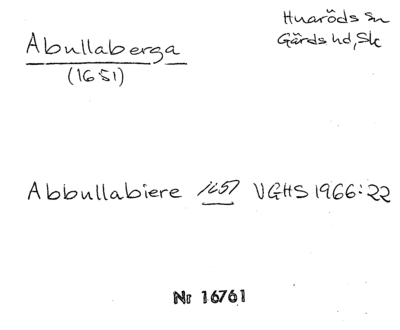 Abullaberga
(1651)
Huaröds sn
Gärds hd, Sk
Abbullabiere 1651 VGHS 1966:22
Nr 16761